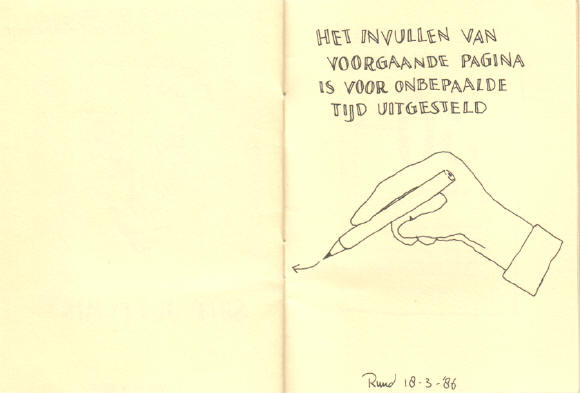 HET INVULLEN VAN
VOORGAANDE PAGINA
IS VOOR ONBEPAALDE
TIJD UITGESTELD
Ruud 18-3-'86